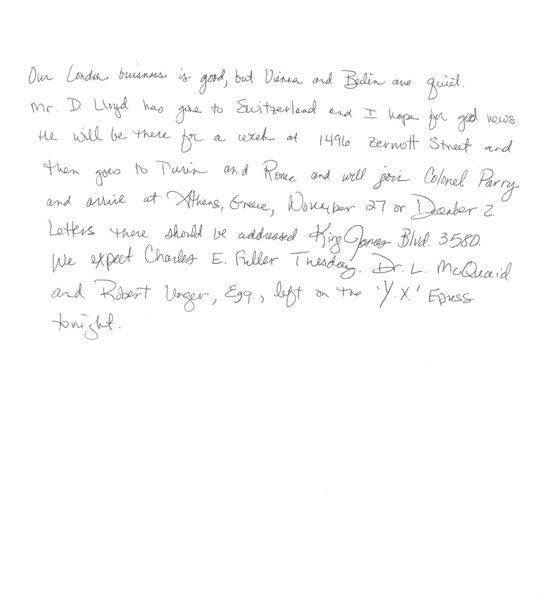 Our London buisness is good, but Vienna and Berlin are quiet.
Mr. D Lloyd has gone to Switzerland and I hope for good news.
He will be there for a week at 1496 Zermott Street and
then goes to Turin and Rome and will join Colonel Parry
and arrive at Athens, Greece, November 27 or December 2.
Letters there should be addressed King James Blvd. 3580.
We expect Charles E. Fuller Tuesday. Dr. L. McQuaid
and Robert Unger, Esq., left on the 'Y.X.' Epress
tonight.